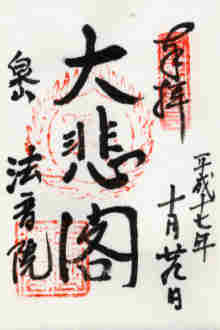 奉拝
平成十七年
十月廿九日
大悲閣
泉山
法音院